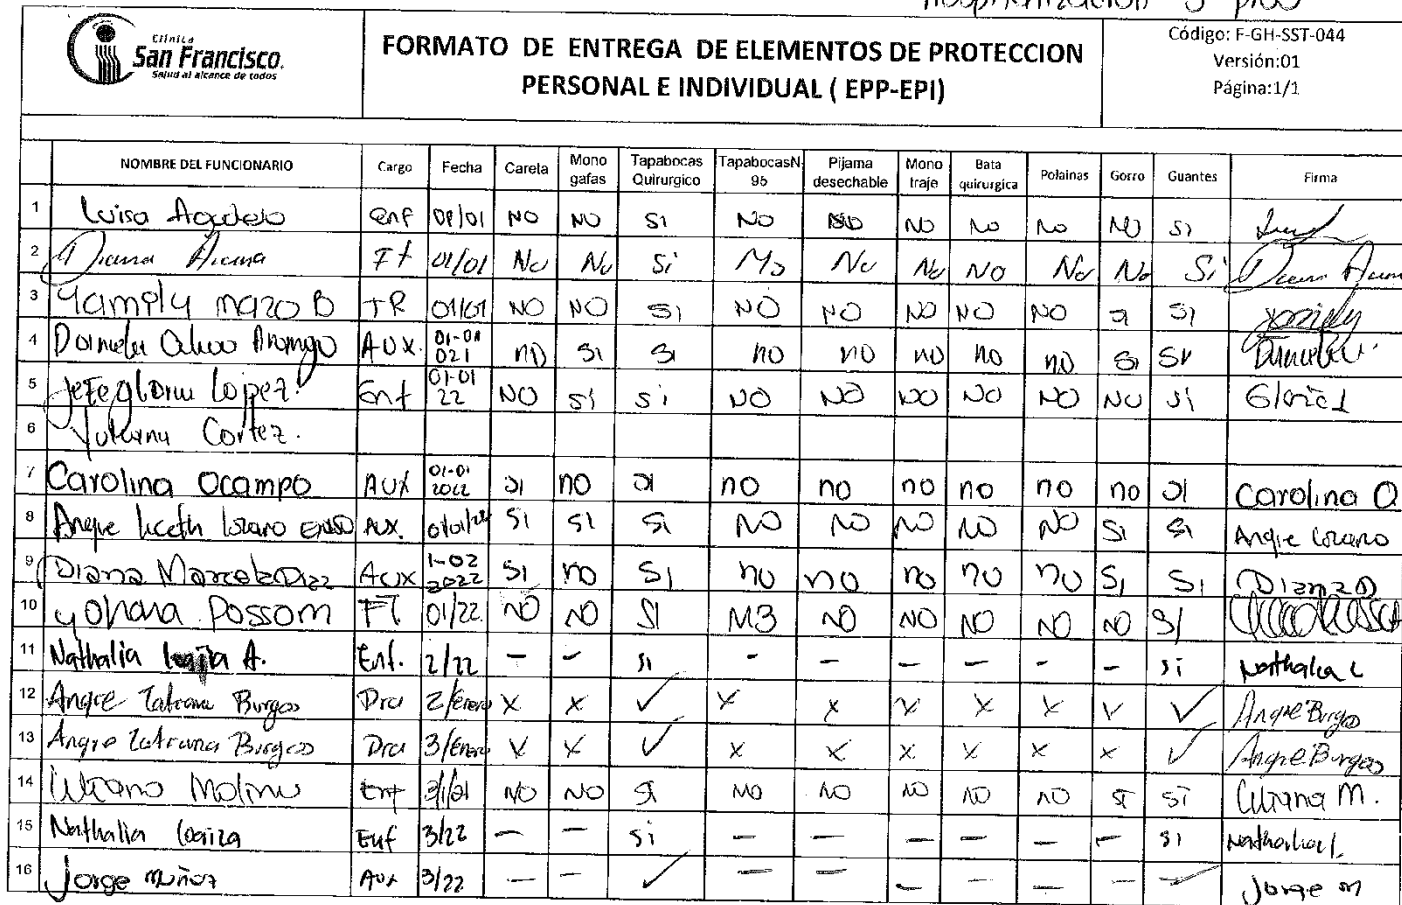 Hospitalización 3 piso
Clínica
San Francisco.
Salud al alcance de todos
FORMATO DE ENTREGA DE ELEMENTOS DE PROTECCION
PERSONAL E INDIVIDUAL ( EPP-EPI)
Código: F-GH-SST-044
Versión:01
Página:1/1
NOMBRE DEL FUNCIONARIO Cargo Fecha Carela Mono gafas Tapabocas Quirurgico TapabocasN 95 Pijama desechable Mono traje Bata quirurgica Polainas Gorro Guantes Firma
1 Luisa Agudelo enf 01/01 NO NO SI NO NO NO NO NO NO SI
2 Diana FT 01/01 No No Si No No No No No Si Diana
3 mazo B TR 01/01 NO NO SI NO NO NO NO NO SI SI
4 Daniela Arango AUX. 01-01 021 no SI SI no no no no no SI SI Daniela
5 Jefe Gloria Lopez. Enf 01-01 22 NO Si Si NO NO NO NO NO NO Si Gloria L
6 Yuliana Cortez.
7 Carolina Ocampo AUX 01-01 2022 SI no SI no no no no no no SI Carolina O
8 Angie liceth lozano AUX. 01/01/22 SI SI SI NO NO NO NO NO SI SI Angie lozano
9 Diana Marcela Diaz Aux 1-02 2022 SI no SI no no no no no SI SI Diana D
10 yohana Possom FT 01/22. NO NO SI M3 NO NO NO NO NO SI
11 Nathalia loaiza A. Enf. 2/22 - - si - - - - - - si Nathalia L
12 Angie Tatiana Burgos Dra 2/Enero X X ✓ X X X X X X ✓ Angie Burgos
13 Angie Tatiana Burgos Dra 3/Enero X X ✓ X X X X X X ✓ Angie Burgos
14 Molina Enf NO NO SI NO NO NO NO NO SI SI M.
15 Nathalia loaiza Enf 3/22 - - si - - - - - - si Nathalia l.
16 Jorge muñoz Aux 3/22 - - ✓ - - - - - - ✓ Jorge m